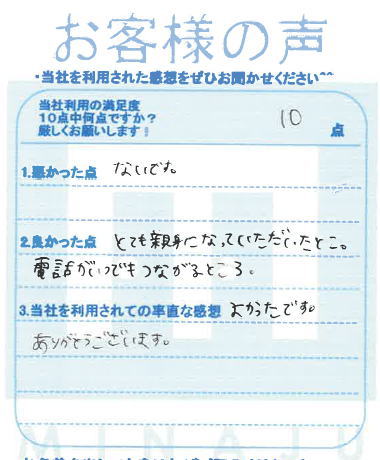 お客様の声
・当社を利用された感想をぜひお聞かせください^^
当社利用の満足度
10点中何点ですか？
厳しくお願いします！
10 点
1.悪かった点 ないです。
2.良かった点 とても親身になっていただいたとこ。
電話がいつでもつながるところ。
3.当社を利用されての率直な感想 よかったです。
ありがとうございます。
MINAJU